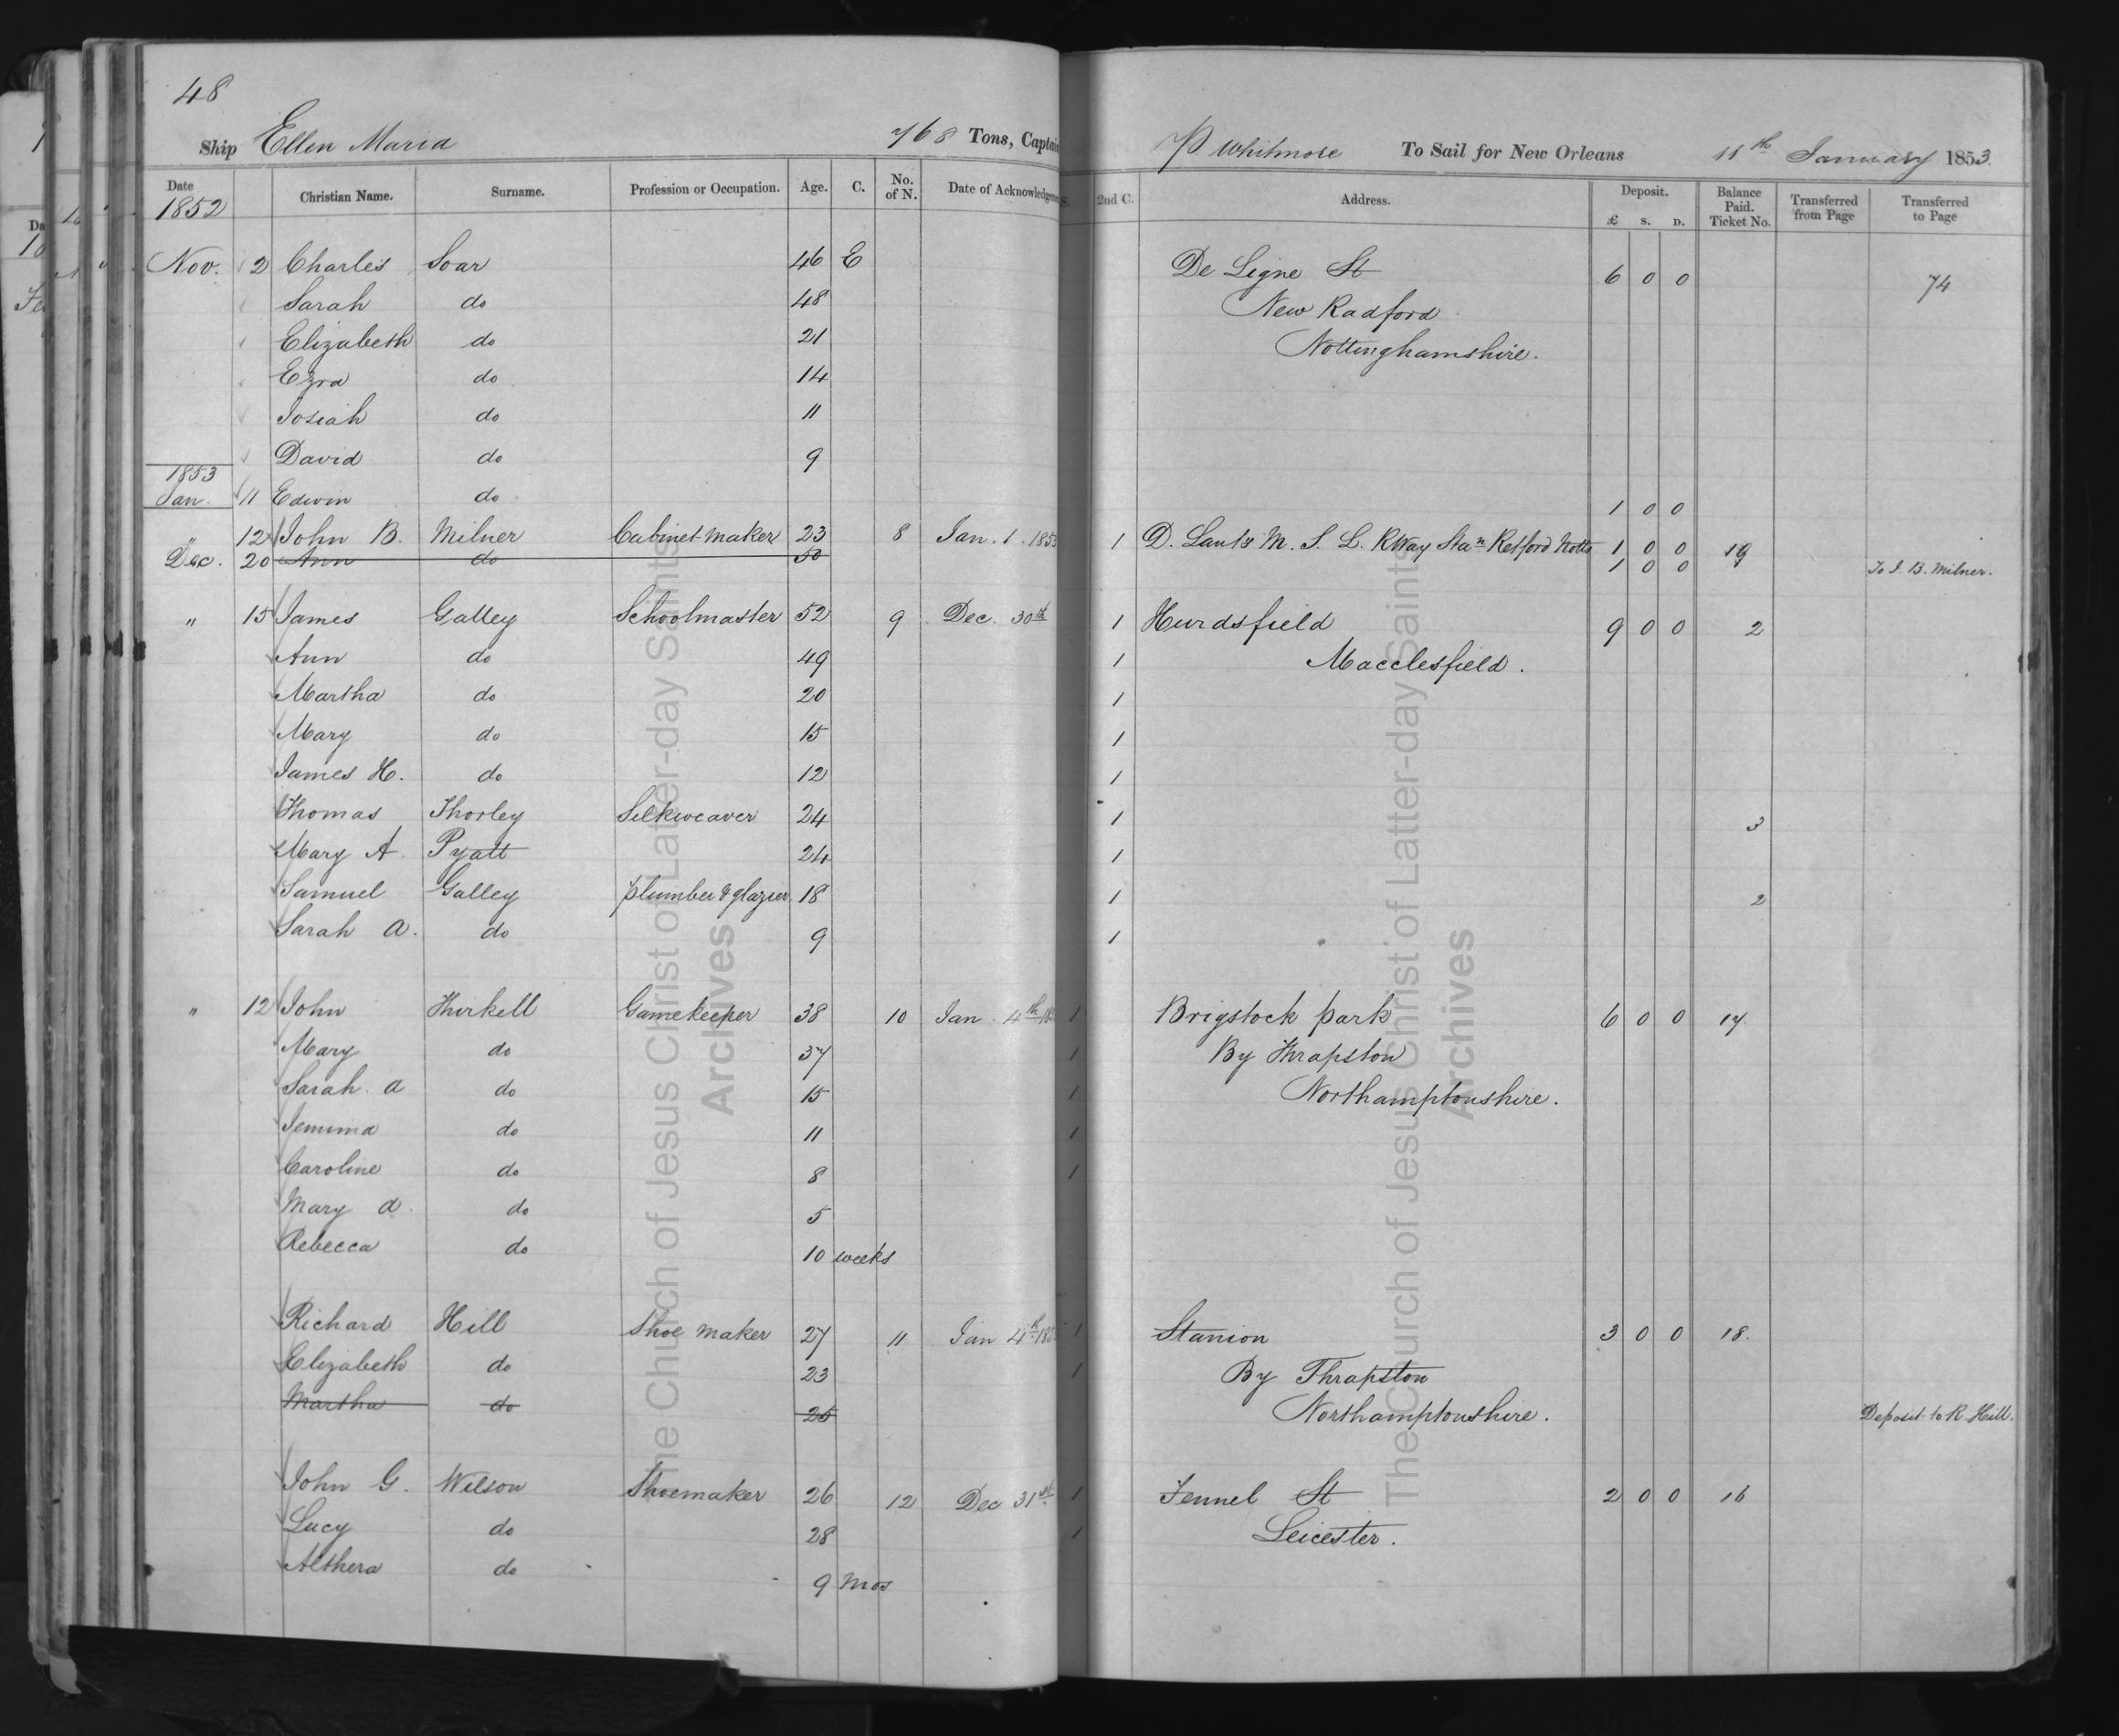 48
Ship Ellen Maria 768 Tons, Captain P. Whitmore To Sail for New Orleans 11th January 1853.
Date Christian Name. Surname. Profession or Occupation. Age. C. No. of N. Date of Acknowledgment 2nd C. Address. Deposit. £ s. D. Balance Paid. Ticket No. Transferred from Page Transferred to Page
1852
Nov. 2 Charles Soar 46 E De Ligne St 6 0 0 74
Sarah do 48 New Radford
Elizabeth do 21 Nottinghamshire.
Ezra do 14
Josiah do 11
David do 9
1853
Jan. 11 Edwin do 1 0 0
" 12 John B. Milner Cabinet maker 23 8 Jan. 1. 1853 1 D. M. S. L. RWay Stan Retford Notts 1 0 0 19
Dec. 20 Ann do 50 1 0 0 To J. B. Milner.
" 15 James Galley Schoolmaster 52 9 Dec. 30th 1 Hurdsfield 9 0 0 2
Ann do 49 1 Macclesfield.
Martha do 20 1
Mary do 15 1
James H. do 12 1
Thomas Thorley Silkweaver 24 1 3
Mary A. Pyatt 24 1
Samuel Galley plumber & glazier 18 1 2
Sarah A. do 9 1
" 12 John Thirkell Gamekeeper 38 10 Jan. 4th 1 Brigstock Park 6 0 0 17
Mary do 37 1 By Thrapston
Sarah a do 15 1 Northamptonshire.
Jemima do 11 1
Caroline do 8 1
Mary a. do 5
Rebecca do 10 weeks
Richard Hill Shoe maker 27 11 Jan 4th 1 Stanion 3 0 0 18.
Elizabeth do 23 1 By Thrapston
Martha do 25 Northamptonshire. Deposit to R Hill.
John G. Wilson Shoemaker 26 12 Dec 31st 1 Fennel St 2 0 0 16
Lucy do 28 1 Leicester.
Althera do 9 mos
The Church of Jesus Christ of Latter-day Saints
Archives
The Church of Jesus Christ of Latter-day Saints
Archives